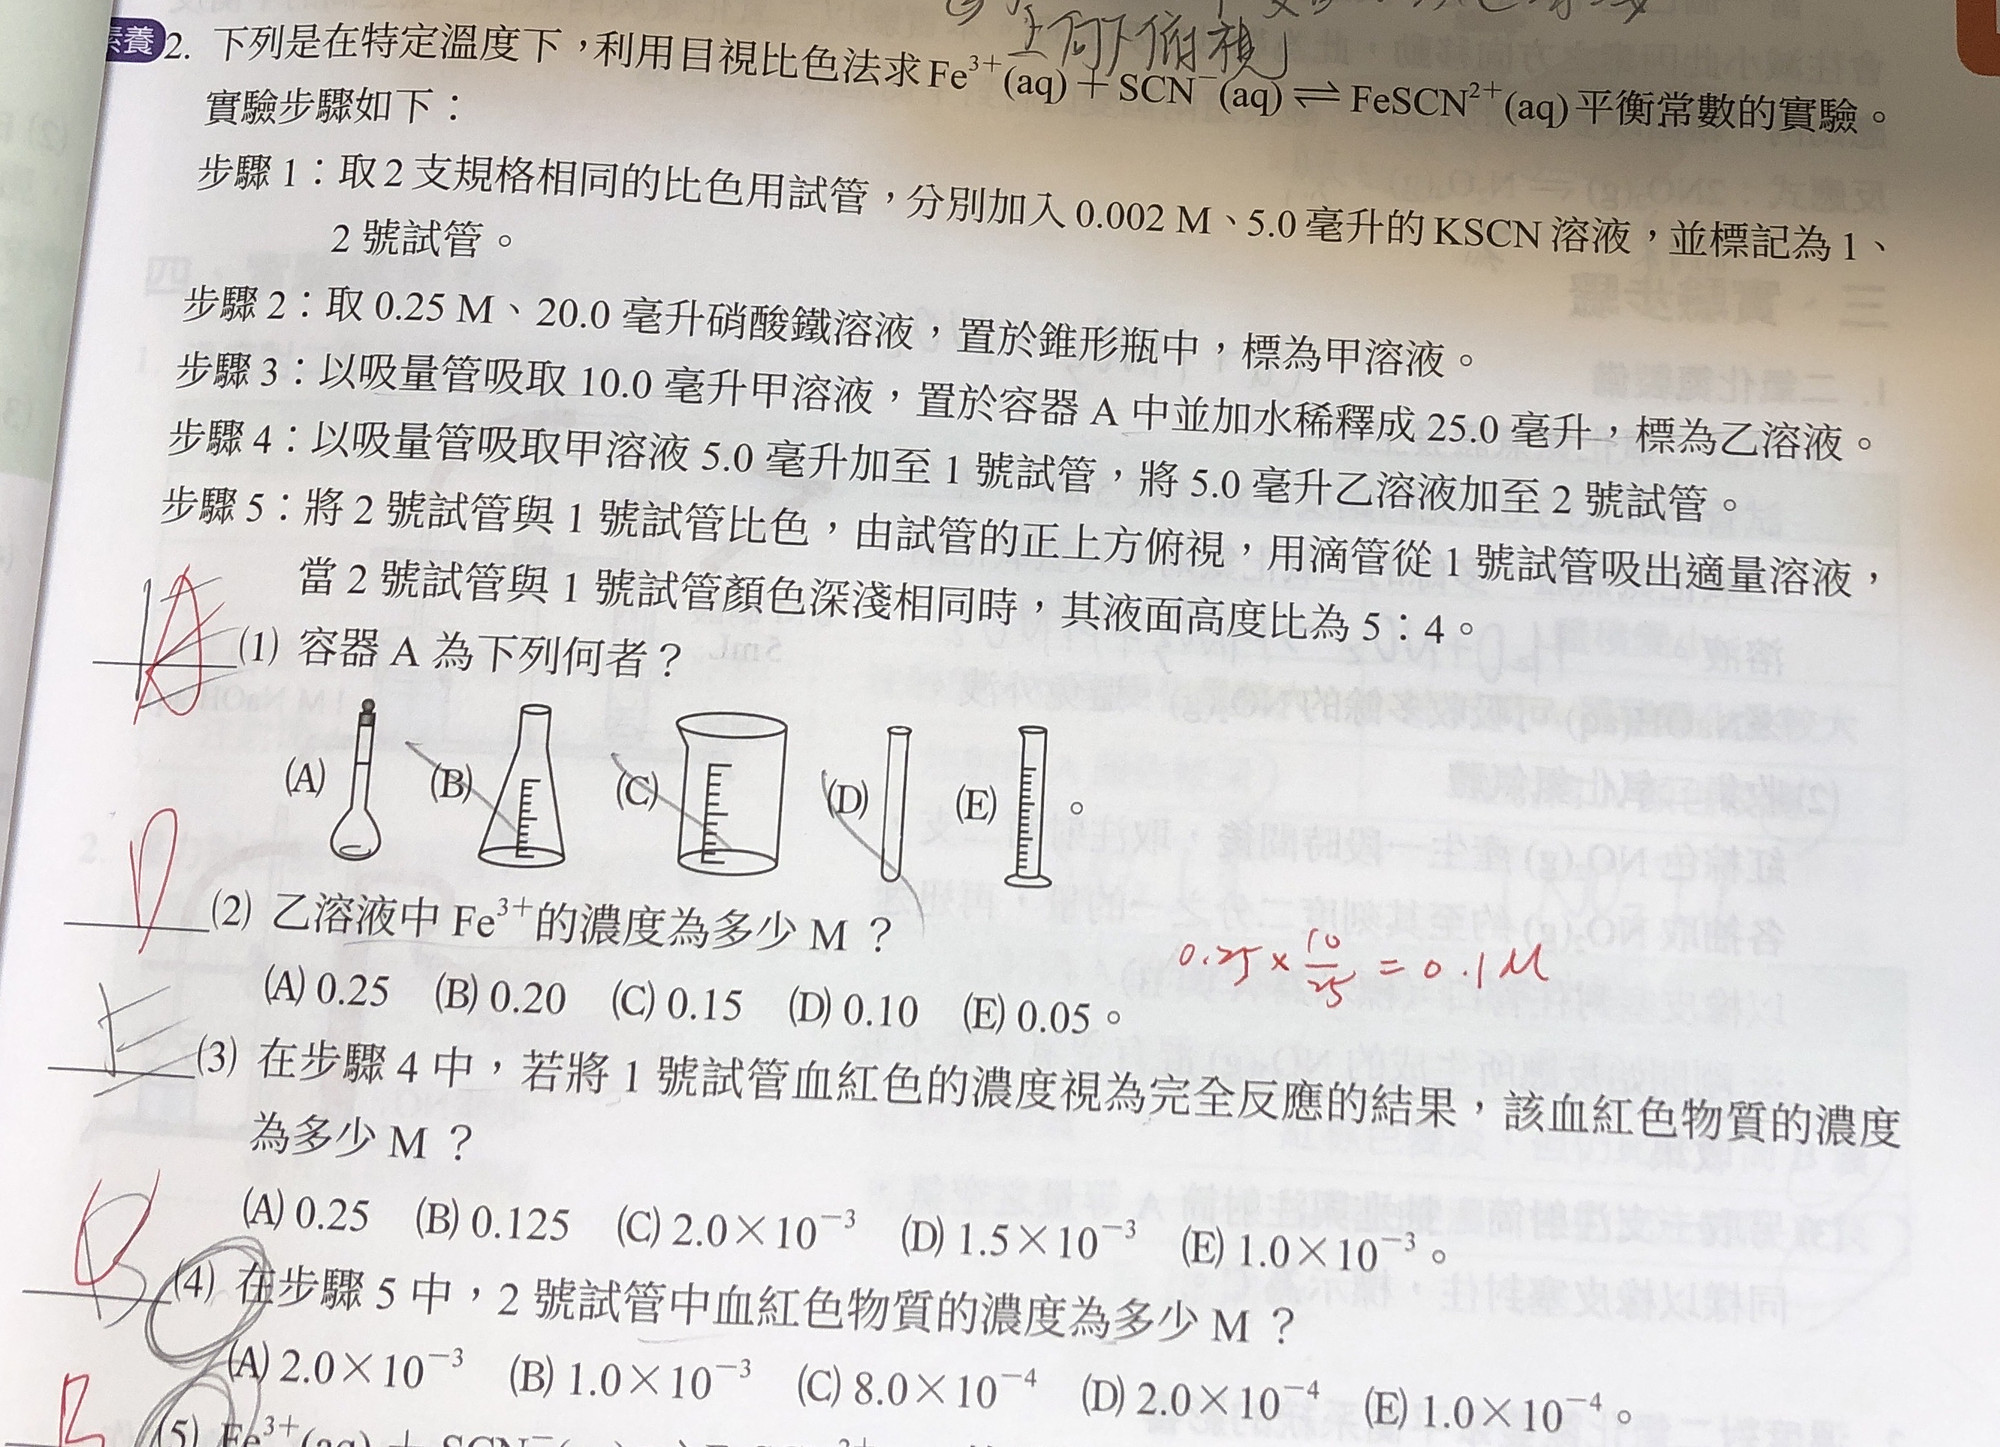 上向下俯視
素養 2. 下列是在特定溫度下，利用目視比色法求 Fe³⁺(aq) + SCN⁻(aq) ⇌ FeSCN²⁺(aq) 平衡常數的實驗。
實驗步驟如下：
步驟 1：取 2 支規格相同的比色用試管，分別加入 0.002 M、5.0 毫升的 KSCN 溶液，並標記為 1、
2 號試管。
步驟 2：取 0.25 M、20.0 毫升硝酸鐵溶液，置於錐形瓶中，標為甲溶液。
步驟 3：以吸量管吸取 10.0 毫升甲溶液，置於容器 A 中並加水稀釋成 25.0 毫升，標為乙溶液。
步驟 4：以吸量管吸取甲溶液 5.0 毫升加至 1 號試管，將 5.0 毫升乙溶液加至 2 號試管。
步驟 5：將 2 號試管與 1 號試管比色，由試管的正上方俯視，用滴管從 1 號試管吸出適量溶液，
當 2 號試管與 1 號試管顏色深淺相同時，其液面高度比為 5：4。
A (1) 容器 A 為下列何者？
(A) (B) (C) (D) (E) 。
D (2) 乙溶液中 Fe³⁺的濃度為多少 M？
0.25 × 10/25 = 0.1 M
(A) 0.25 (B) 0.20 (C) 0.15 (D) 0.10 (E) 0.05。
E (3) 在步驟 4 中，若將 1 號試管血紅色的濃度視為完全反應的結果，該血紅色物質的濃度
為多少 M？
(A) 0.25 (B) 0.125 (C) 2.0×10⁻³ (D) 1.5×10⁻³ (E) 1.0×10⁻³。
(4) 在步驟 5 中，2 號試管中血紅色物質的濃度為多少 M？
(A) 2.0×10⁻³ (B) 1.0×10⁻³ (C) 8.0×10⁻⁴ (D) 2.0×10⁻⁴ (E) 1.0×10⁻⁴。
B (5) Fe³⁺(aq) + SCN⁻